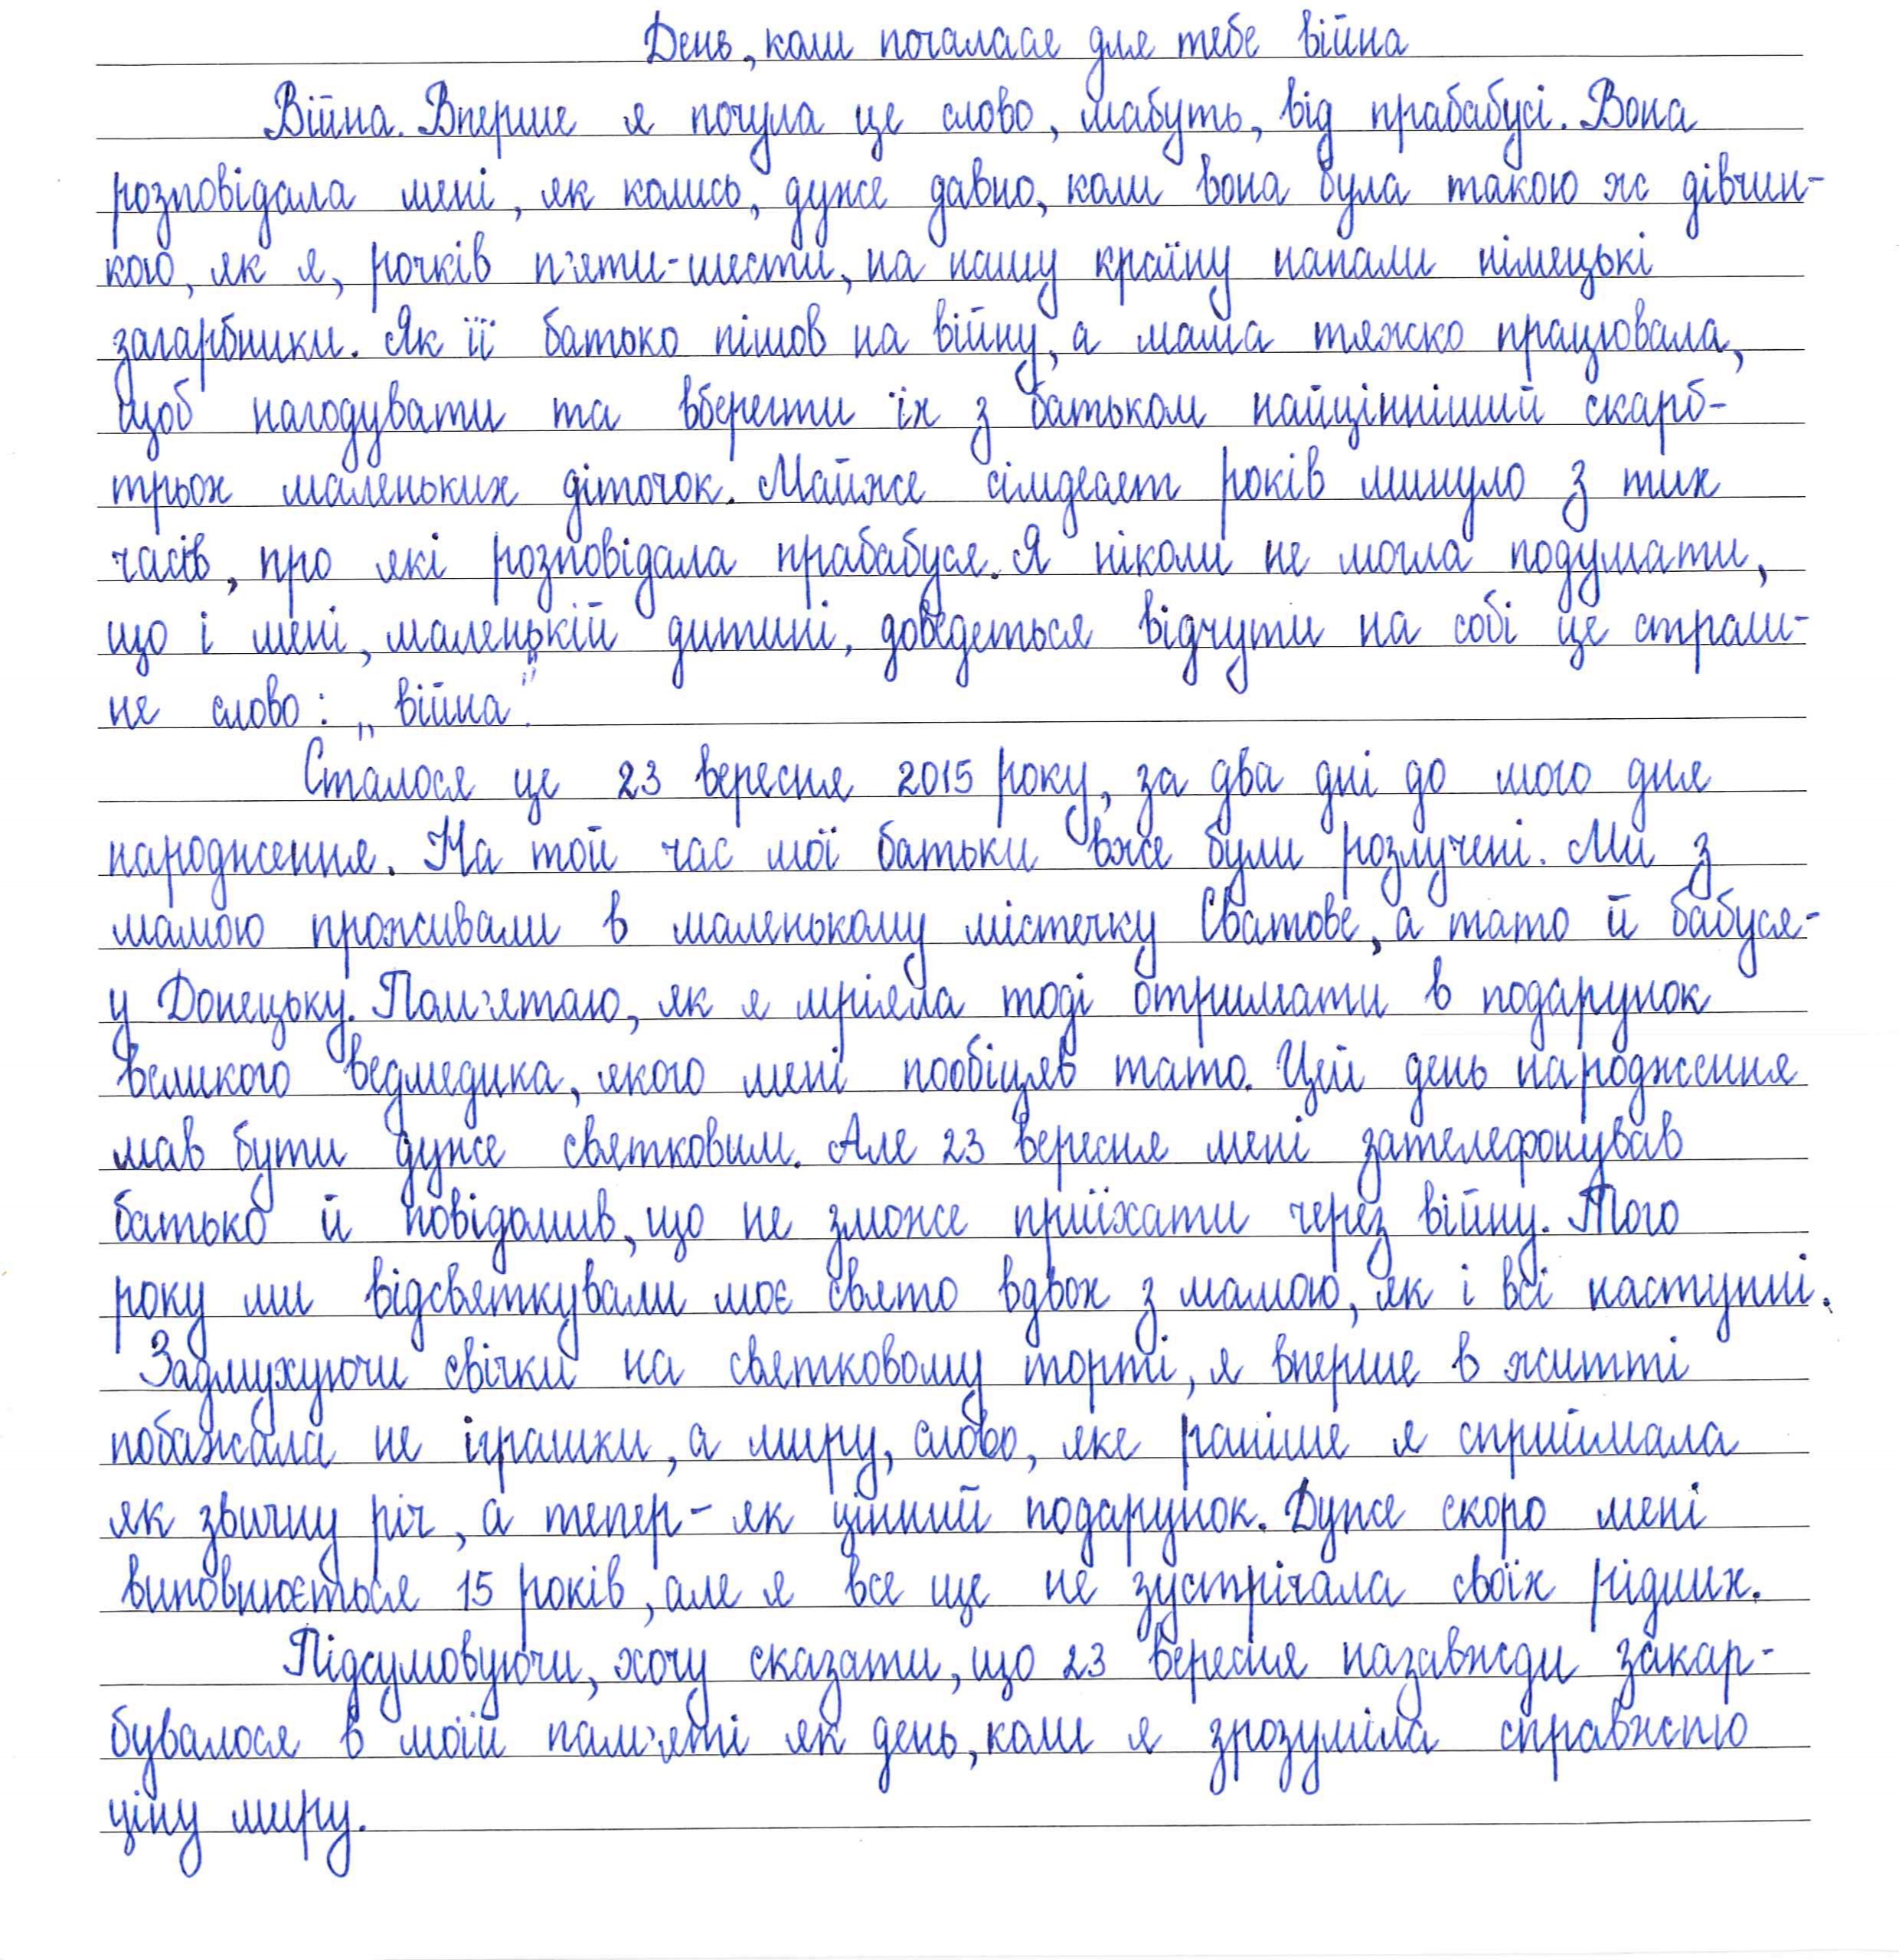 День, коли почалася для тебе війна
Війна. Вперше я почула це слово, мабуть, від прабабусі. Вона
розповідала мені, як колись, дуже давно, коли вона була такою ж дівчин-
кою, як я, рочків п'яти-шести, на нашу країну напали німецькі
загарбники. Як її батько пішов на війну, а мама тяжко працювала,
щоб нагодувати та вберегти їх з батьком найцінніший скарб-
трьох маленьких діточок. Майже сімдесят років минуло з тих
часів, про які розповідала прабабуся. Я ніколи не могла подумати,
що і мені, маленькій дитині, доведеться відчути на собі це страш-
не слово: „війна".
Сталося це 23 вересня 2015 року, за два дні до мого дня
народження. На той час мої батьки вже були розлучені. Ми з
мамою проживали в маленькому містечку Сватове, а тато й бабуся-
у Донецьку. Пам'ятаю, як я мріяла тоді отримати в подарунок
великого ведмедика, якого мені пообіцяв тато. Цей день народження
мав бути дуже святковим. Але 23 вересня мені зателефонував
батько й повідомив, що не зможе приїхати через війну. Того
року ми відсвяткували моє свято вдвох з мамою, як і всі наступні.
Задмухуючи свічки на святковому торті, я вперше в житті
побажала не іграшки, а миру, слово, яке раніше я сприймала
як звичну річ, а тепер- як цінний подарунок. Дуже скоро мені
виповнюється 15 років, але я все ще не зустрічала своїх рідних.
Підсумовуючи, хочу сказати, що 23 вересня назавжди закар-
бувалося в моїй пам'яті як день, коли я зрозуміла справжню
ціну миру.